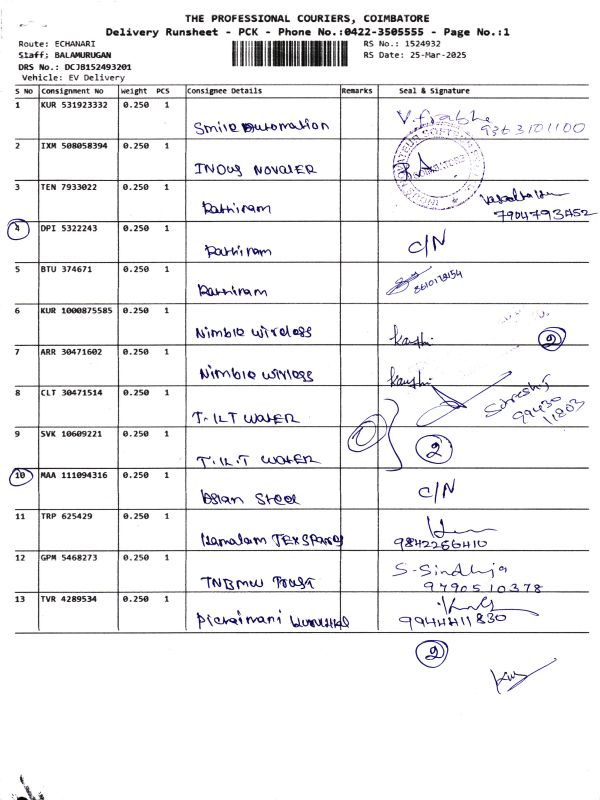 THE PROFESSIONAL COURIERS, COIMBATORE
Delivery Runsheet - PCK - Phone No.:0422-3505555 - Page No.:1
Route: ECHANARI RS No.: 1524932
Staff: BALAMURUGAN RS Date: 25-Mar-2025
DRS No.: DCJB152493201
Vehicle: EV Delivery
S No Consignment No Weight PCS Consignee Details Remarks Seal & Signature
1 KUR 531923332 0.250 1 Smile Automation V. Prabhu 9363101100
2 IXM 508058394 0.250 1 INDUS NOVATER
3 TEN 7933022 0.250 1 Rathiram 7904793452
4 DPI 5322243 0.250 1 Rathiram C/N
5 BTU 374671 0.250 1 Rathiram 8610178154
6 KUR 1000875585 0.250 1 Nimble wireless 2
7 ARR 30471602 0.250 1 Nimble wireless
8 CLT 30471514 0.250 1 T.ILT WATER 99430 11803
9 SVK 10609221 0.250 1 T.IL.T WATER 2
10 MAA 111094316 0.250 1 Asian Steel C/N
11 TRP 625429 0.250 1 Kamalam TEX SPARES 9842256410
12 GPM 5468273 0.250 1 TNBMW TRUST S-Sindhuja 9790510378
13 TVR 4289534 0.250 1 9944411830
2